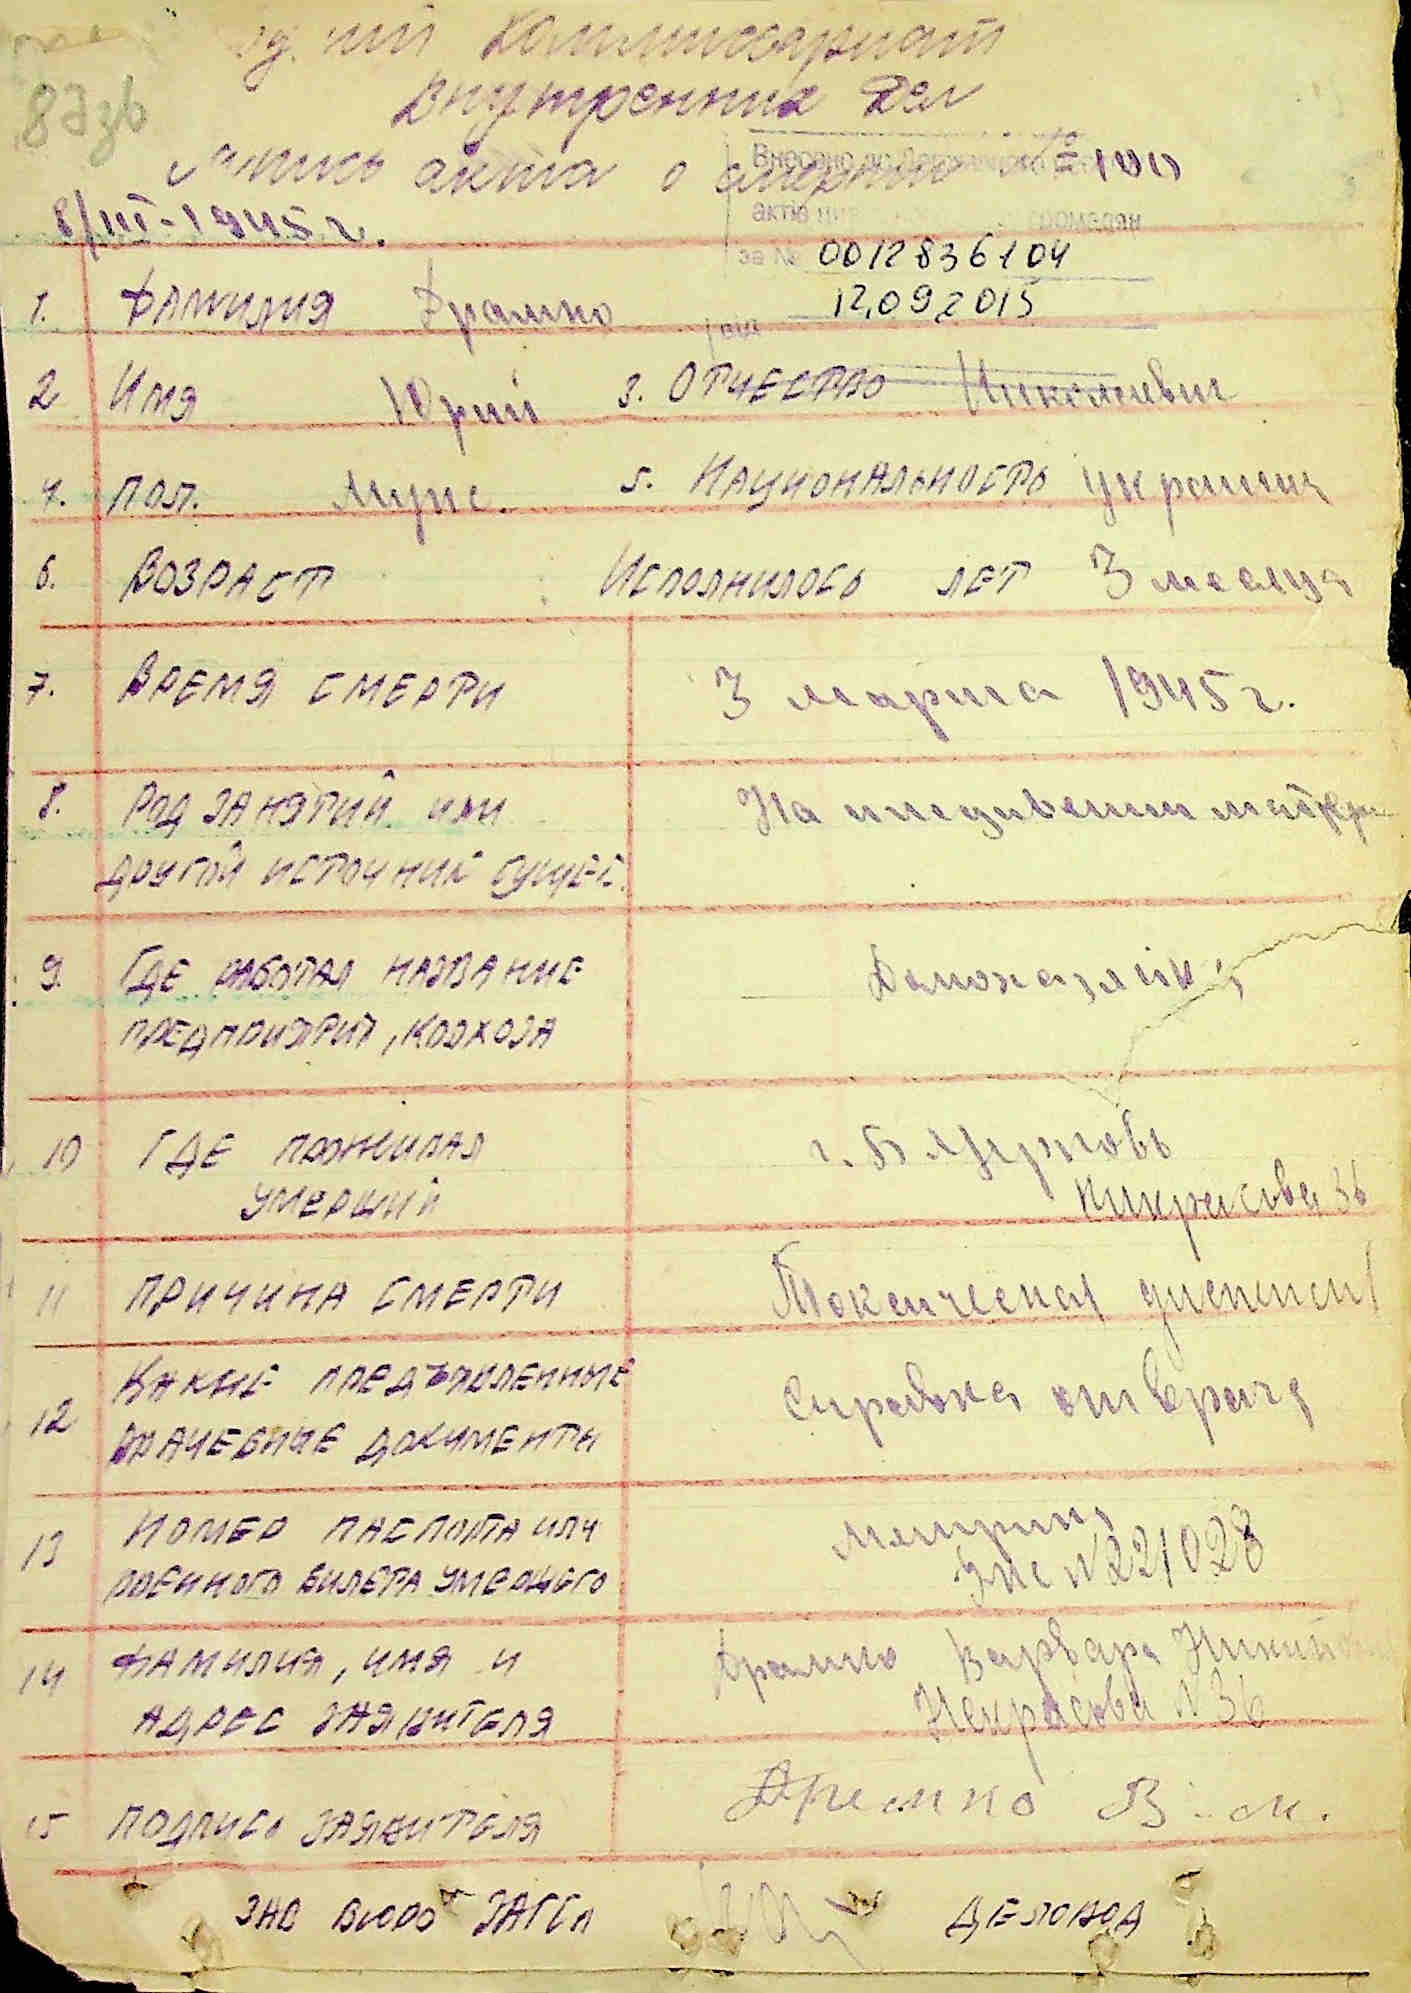 Комиссариат
Внутренних Дел
акта о смерти № 100
8/III-1945 г.
Внесено до Державного
актів громадян
за № 0012836104
12.09.2015
1. Фамилия Драмко
2 Имя Юрий 3. Отчество Николаевич
4. Пол. Муж. 5. Национальность украинец
6. Возраст Исполнилось лет 3 месяца
7. Время смерти 3 марта 1945 г.
8. Род занятий или
другой источник сущес. На иждивении матери
9. Где работал название
предприятия, колхоза Домохазяйка
10 Где проживал
умерший г. Б Церковь
Никрасова 36
11 Причина смерти Токсическая диспепсия
12 Какие предъявленные
врачебные документы Справка от врача
13 Номер паспорта или
военного билета умершего
№ 221028
14 Фамилия, имя и Драмко Варвара
адрес заявителя Некрасова № 36
15 Подпись заявителя Дремко В.
Зав бюро ЗАГСа Деловод